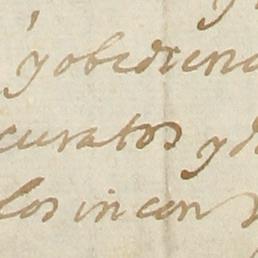 y obedienc
curatos y d
los incon